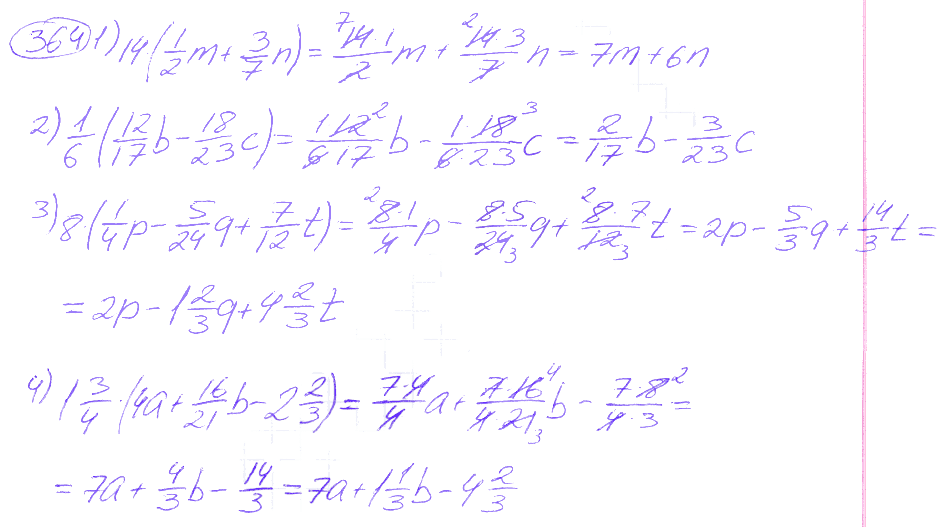 364 1) 14(1/2 m + 3/7 n) = 14·1/2 m + 14·3/7 n = 7m + 6n
2) 1/6 (12/17 b − 18/23 c) = 1·12/6·17 b − 1·18/6·23 c = 2/17 b − 3/23 c
3) 8·(1/4 p − 5/24 q + 7/12 t) = 8·1/4 p − 8·5/24 q + 8·7/12 t = 2p − 5/3 q + 14/3 t =
= 2p − 1 2/3 q + 4 2/3 t
4) 1 3/4 ·(4a + 16/21 b − 2 2/3) = 7·4/4 a + 7·16/4·21 b − 7·8/4·3 =
= 7a + 4/3 b − 14/3 = 7a + 1 1/3 b − 4 2/3